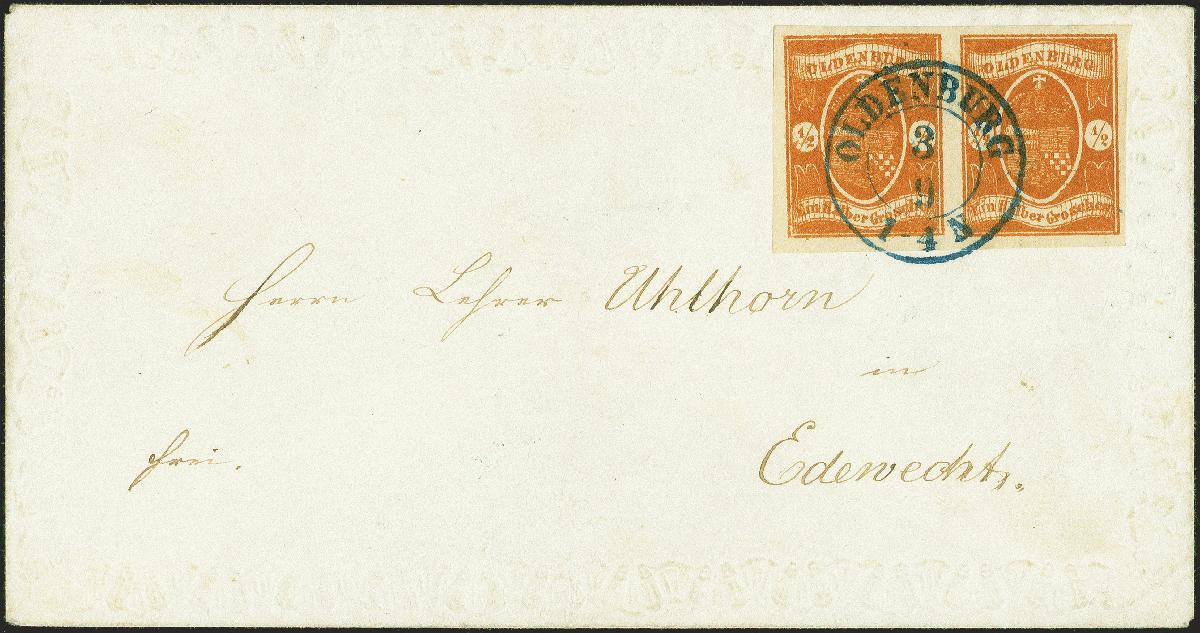 OLDENBURG OLDENBURG
1/2 1/2 1/2
Ein Halber Groschen Ein Halber Groschen
OLDENBURG
3
9
1-4 N
Herrn Lehrer Uhlhorn
in
frei.
Edewecht.